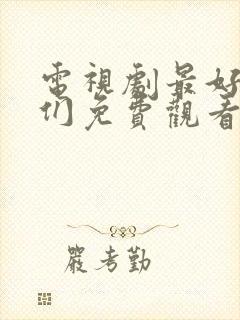 電視劇最好
们免費觀看
嚴考勤